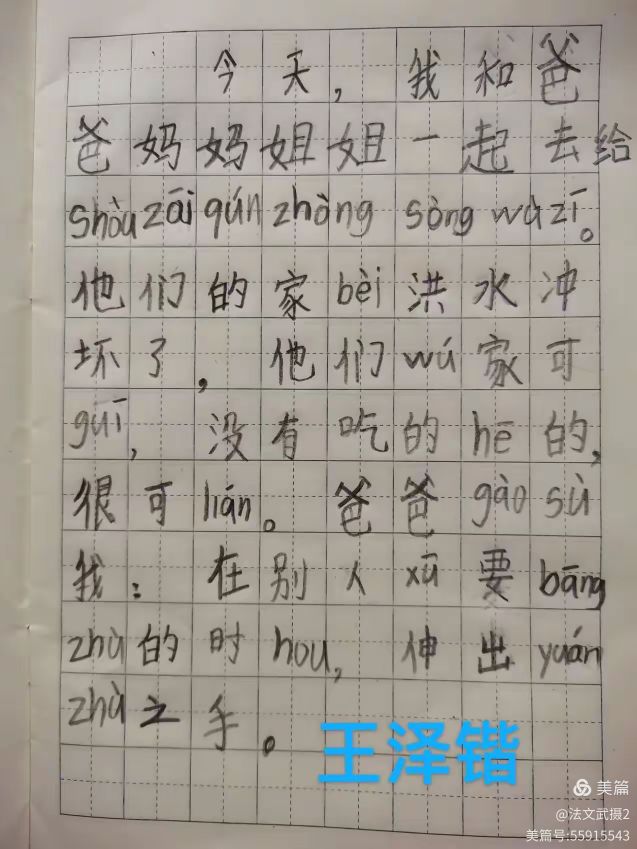 今天，我和爸
爸妈妈姐姐一起去给
shòu zāi qún zhòng sòng wù zī。
他们的家bèi洪水冲
坏了，他们wú家可
guī，没有吃的hē的，
很可lián。爸爸gào sù
我：在别人xū要bāng
zhù的时hou，伸出yuán
zhù之手。
王泽锴
美篇
@法文武摄2
美篇号:55915543